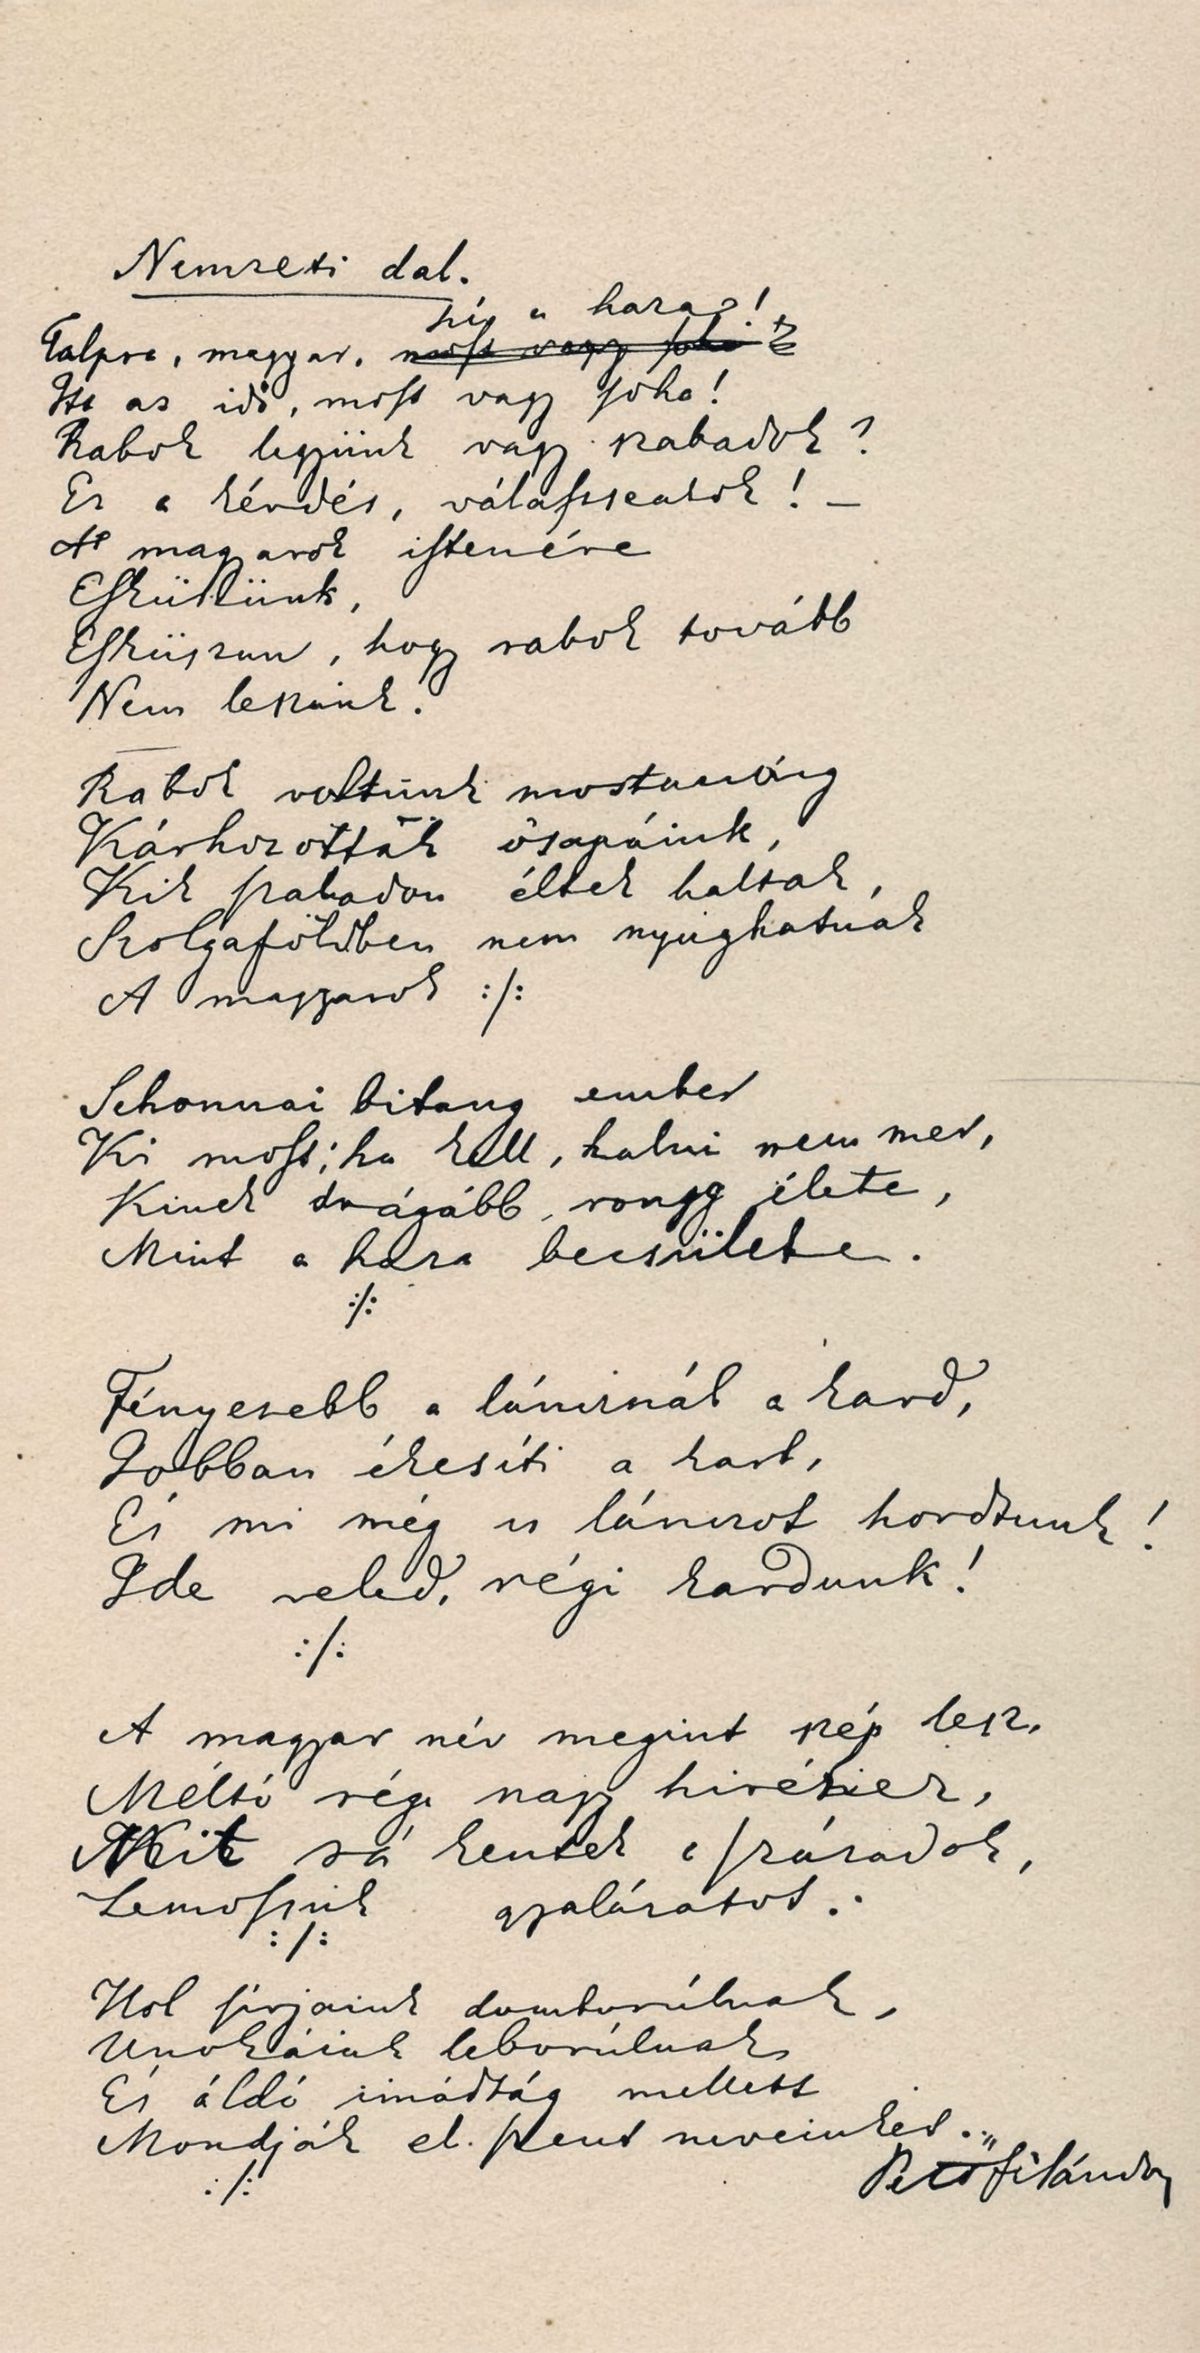 Nemzeti dal.
hí a haza!
Talpra, magyar, most vagy soha!
Itt az idő, most vagy soha!
Rabok legyünk vagy szabadok?
Ez a kérdés, válasszatok! –
A magyarok istenére
Esküszünk,
Esküszünk, hogy rabok tovább
Nem leszünk.
Rabok voltunk mostanáig
Kárhozottak ősapáink,
Kik szabadon éltek haltak,
Szolgaföldben nem nyughatnak
A magyarok :/:
Sehonnai bitang ember
Ki most, ha kell, halni nem mer,
Kinek drágább rongy élete,
Mint a haza becsülete.
:/:
Fényesebb a láncznál a kard,
Jobban ékesíti a kart,
És mi még is lánczot hordtunk!
Ide veled, régi kardunk!
:/:
A magyar név megint szép lesz,
Méltó régi nagy hiréhez,
Mit rá kentek a századok,
Lemossuk gyalázatot.
:/:
Hol sirjaink domborúlnak,
Unokáink leborúlnak
És áldó imádság mellett
Mondják el szent neveinket.
:/:
Petőfi Sándor